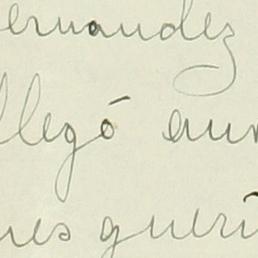 ernandez
llegó aun
ues queri